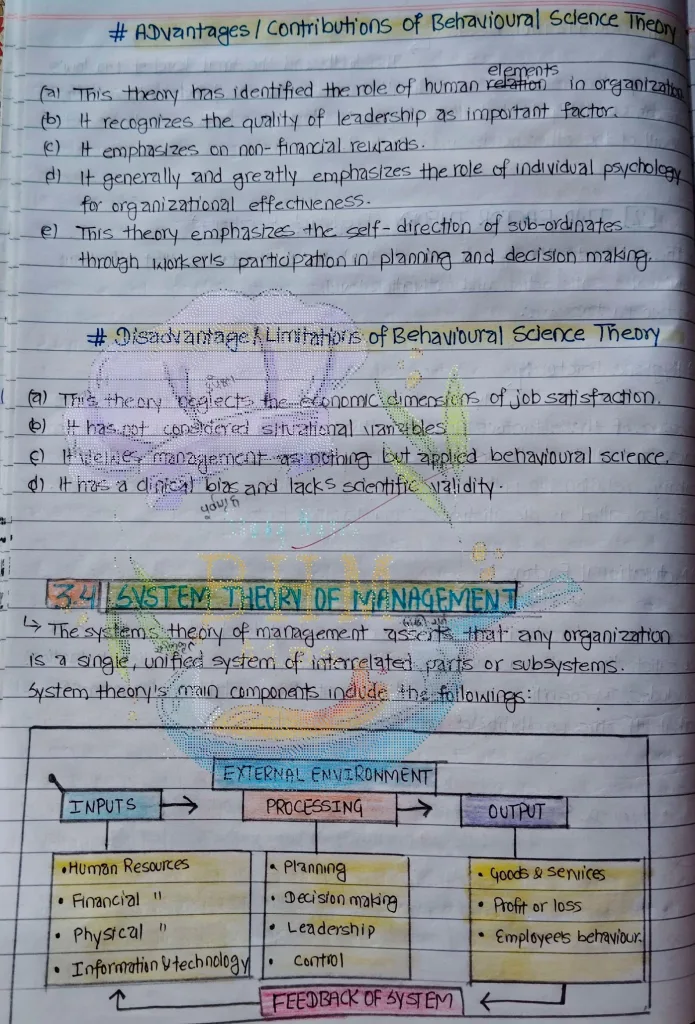 # Advantages / Contributions of Behavioural Science Theory
elements
(a) This theory has identified the role of human relation in organization
(b) It recognizes the quality of leadership as important factor.
(c) It emphasizes on non-financial rewards.
d) It generally and greatly emphasizes the role of individual psychology
for organizational effectiveness.
e) This theory emphasizes the self-direction of sub-ordinates
through workerls participation in planning and decision making.
# Disadvantage / Limitations of Behavioural Science Theory
(a) This theory neglects the economic dimensions of job satisfaction.
b) It has not considered situational variables
c) It views management as nothing but applied behavioural science.
d) It has a clinical bias and lacks scientific validity.
BHM
3.4 SYSTEM THEORY OF MANAGEMENT
↳ The systems theory of management asserts that any organization
is a single, unified system of interrelated parts or subsystems.
System theory's main components include the followings:
EXTERNAL ENVIRONMENT
INPUTS → PROCESSING → OUTPUT
• Human Resources
• Financial "
• Physical "
• Information & technology
• Planning
• Decision making
• Leadership
• Control
• Goods & services
• Profit or loss
• Employees behaviour.
FEEDBACK OF SYSTEM